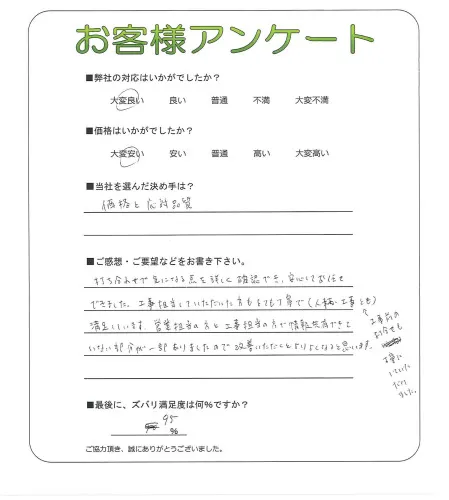 お客様アンケート
■弊社の対応はいかがでしたか？
大変良い 良い 普通 不満 大変不満
■価格はいかがでしたか？
大変安い 安い 普通 高い 大変高い
■当社を選んだ決め手は？
価格と応対品質
■ご感想・ご要望などをお書き下さい。
打ち合わせで気になる点を詳しく確認でき、安心してお任せ
できました。工事担当していただいた方もとても丁寧で(人柄・工事とも)
満足しています。営業担当の方と工事担当の方で情報共有できて
いない部分が一部ありましたので改善いただくとよりよくなると思います。
工事前の
お伝えも
丁寧に
していた
だけ
ました。
■最後に、ズバリ満足度は何%ですか？
95
%
ご協力頂き、誠にありがとうございました。